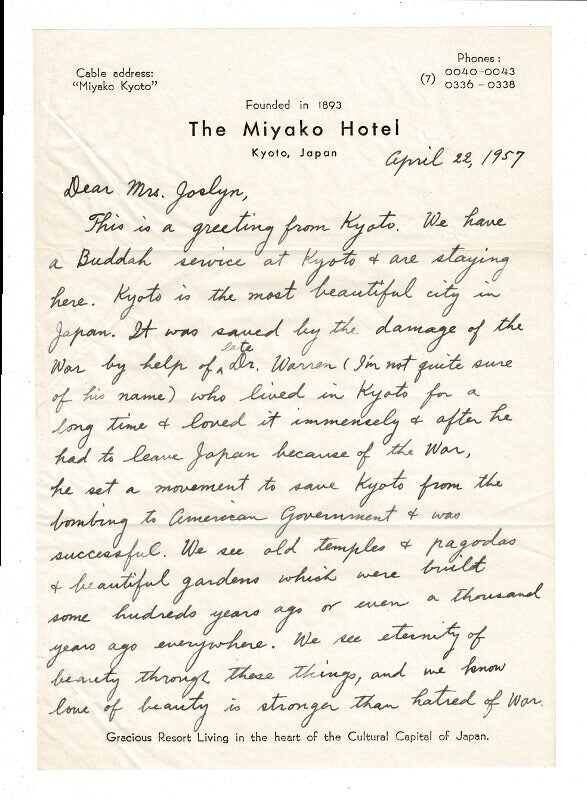 Cable address:
"Miyako Kyoto"
Phones:
(7) 0040-0043
0336-0338
Founded in 1893
The Miyako Hotel
Kyoto, Japan
April 22, 1957
Dear Mrs. Joslyn,
This is a greeting from Kyoto. We have
a Buddah service at Kyoto & are staying
here. Kyoto is the most beautiful city in
Japan. It was saved by the damage of the
War by help of late Dr. Warren (I'm not quite sure
of his name) who lived in Kyoto for a
long time & loved it immensely & after he
had to leave Japan because of the War,
he set a movement to save Kyoto from the
bombing to American Government & was
successful. We see old temples & pagodas
& beautiful gardens which were built
some hudreds years ago or even a thousand
years ago everywhere. We see eternity of
beauty through these things, and we know
love of beauty is stronger than hatred of War.
Gracious Resort Living in the heart of the Cultural Capital of Japan.